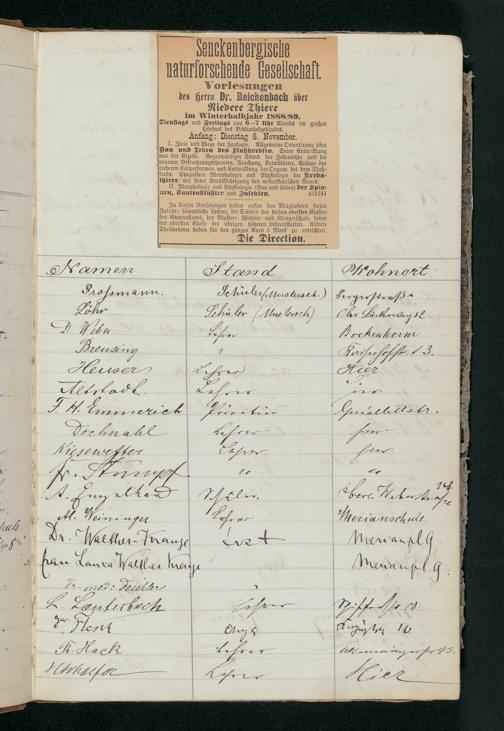 Senckenbergische
naturforschende Gesellschaft.
Vorlesungen
des Herrn Dr. Reichenbach über
Niedere Thiere
im Winterhalbjahr 1888/89.
Dienstags und Freitags von 6–7 Uhr Abends im großen
Hörsaal des Bibliothekgebäudes.
Anfang: Dienstag 6. November.
I. Ziele und Wege der Zoologie. Allgemeine Orientirung über
Bau und Leben des Flußkrebses. Seine Entwicklung
aus der Eizelle. Gegenwärtiger Stand der Zellenlehre und die
neueren Befruchtungstheorien. Furchung, Keimblätter, Anlage der
äußeren Körperformen und Entwicklung der Organe bei dem Fluß-
krebs. Morphologie und Physiologie der Krebs-
thiere, mit steter Berücksichtigung des mikroskopischen Baues.
II. Morphologie und Physiologie (Bau und Leben) der Spin-
nen, Tausendfüßler und Insekten.
Zu diesen Vorlesungen haben außer den Mitgliedern freien
Zutritt: sämmtliche Lehrer, die Schüler der beiden obersten Klassen
des Gymnasiums, der Muster-, Wöhler- und Klingerschule, sowie
der obersten Klasse der übrigen höheren Lehranstalten. Andere
Theilnehmer haben für den ganzen Kurs 5 Mark zu entrichten.
Die Direction.
Namen Stand Wohnort
Grossmann. Schüler (Mustersch.)
Löhr Schüler (Mustersch)
D. Weber Lehrer Bockenheim
Breusing "
Heuser Lehrer Hier
Altstadt. Lehrer hier
F. H. Emmerich Privatier Guiollettstr.
Dochnahl Lehrer hier
Kiesewetter Lehrer hier
Fr. Stumpf " "
A. Engelhard Schüler.
Al. Weininger Lehrer Merianschule
Dr. Walther-Krause Arzt Merianpl 9
Frau Laura Walther Krause Merianpl 9.
Dr. med. Deichler "
L. Lauterbach Lehrer
Dr. Flesch
R. Hack Lehrer
Lehrer Hier